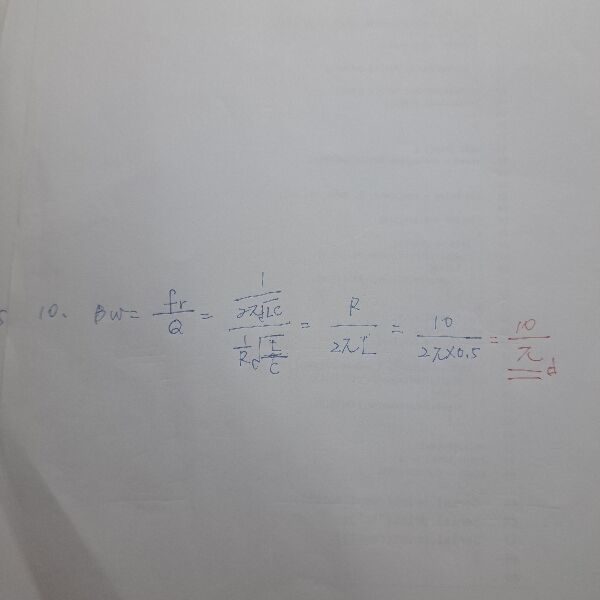 5 10. BW = fr/Q = (1/(2π√LC))/((1/R)√(L/C)) = R/(2πL) = 10/(2π×0.5) = 10/π d